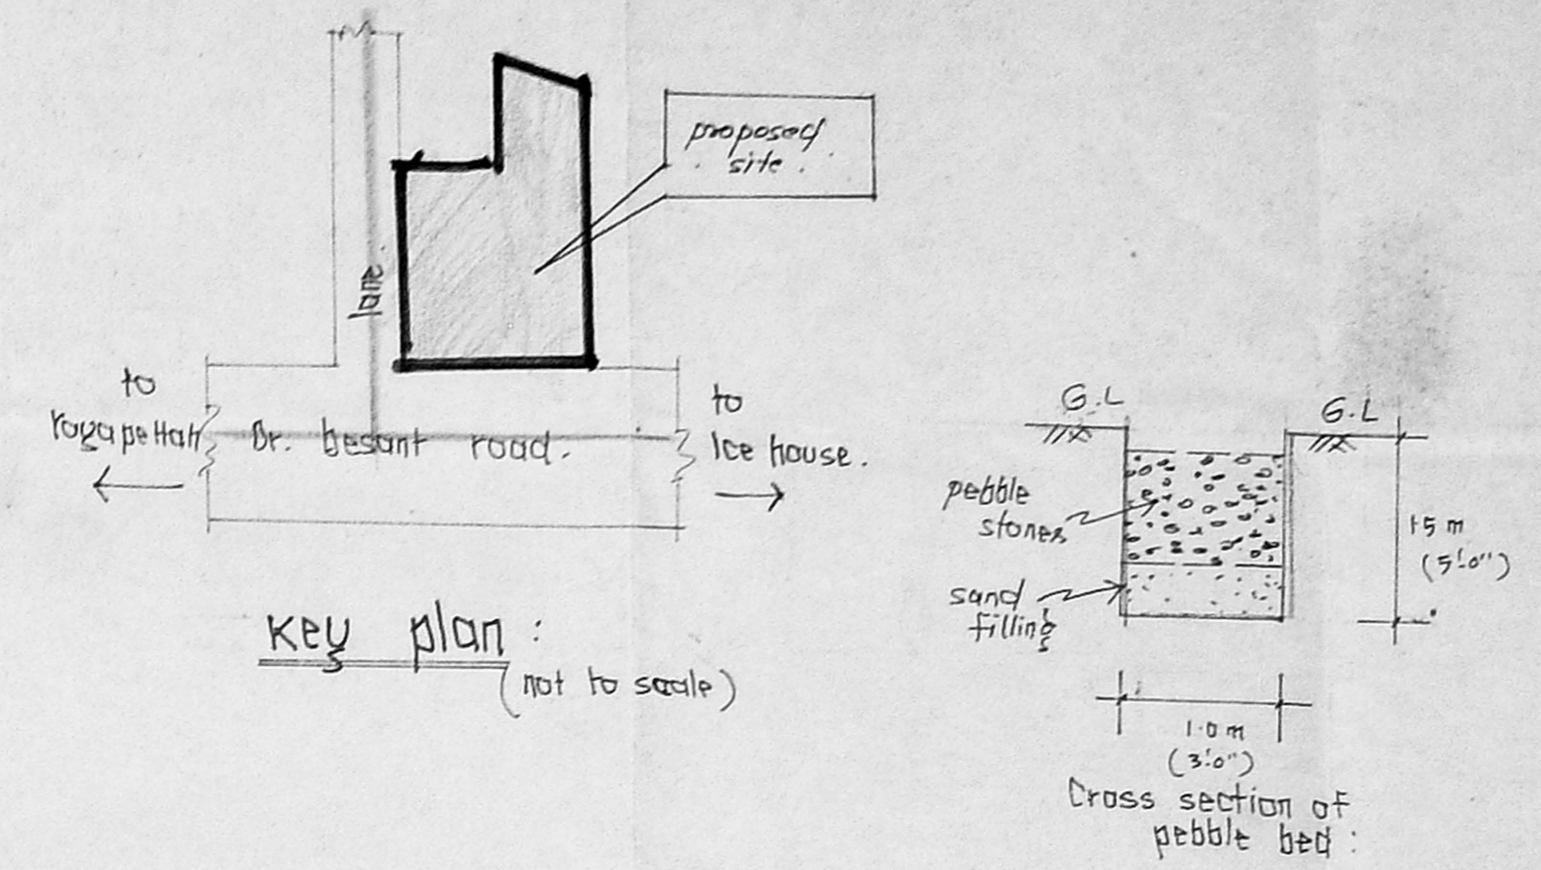 proposed
site.
lane
to
royapettah
Dr. besant road.
to
Ice house.
key plan:
(not to scale)
G.L
G.L
pebble
stones
sand
filling
1.5 m
(5'.0")
1.0 m
(3'.0")
Cross section of
pebble bed: